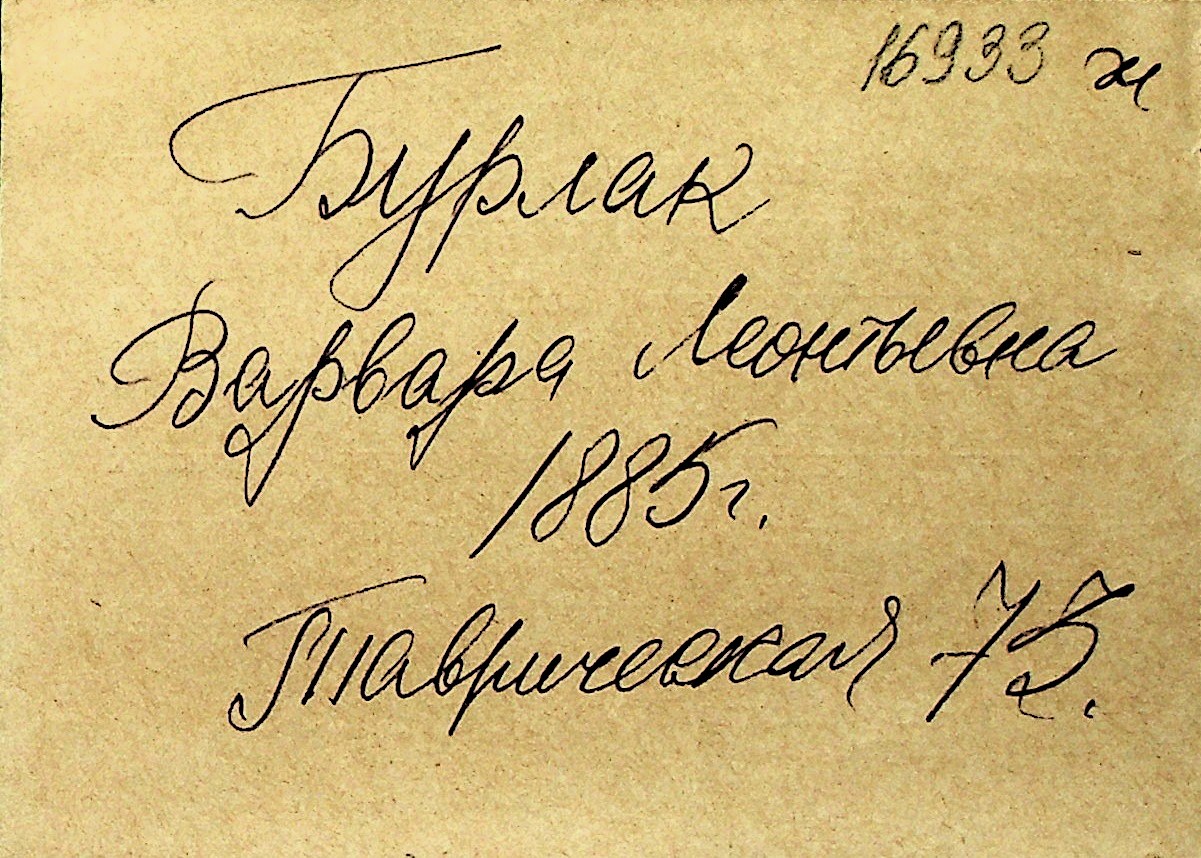 16933 ж
Бурлак
Варвара Леонтьевна
1885г.
Таврическая 75.